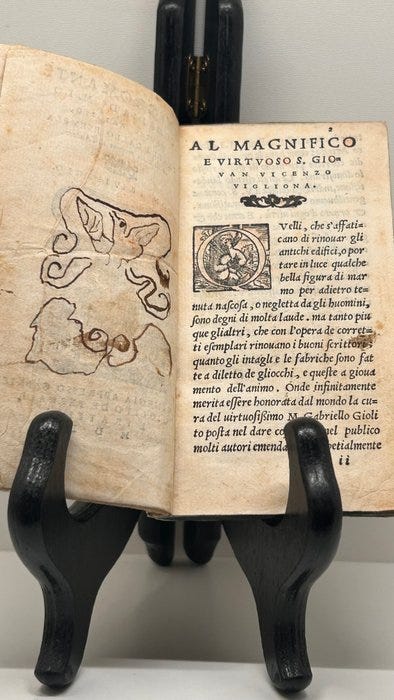 2
AL MAGNIFICO
E VIRTVOSO S. GIO=
VAN VICENZO
VIGLIONA.
QVelli, che s'affati=
cano di rinouar gli
antichi edifici, o por
tare in luce qualche
bella figura di mar
mo per adietro te=
nuta nascosa, o negletta da gli huomini,
sono degni di molta laude. ma tanto piu
que gli altri, che con l'opera de corret=
ti esemplari rinouano i buoni scrittori;
quanto gli intagli e le fabriche sono fat
te a diletto de gliocchi, e queste a gioua
mento dell'animo. Onde infinitamente
merita essere honorata dal mondo la cu=
ra del uirtuosissimo M. Gabriello Gioli
to posta nel dare nel publico
molti autori emenda petialmente
ii